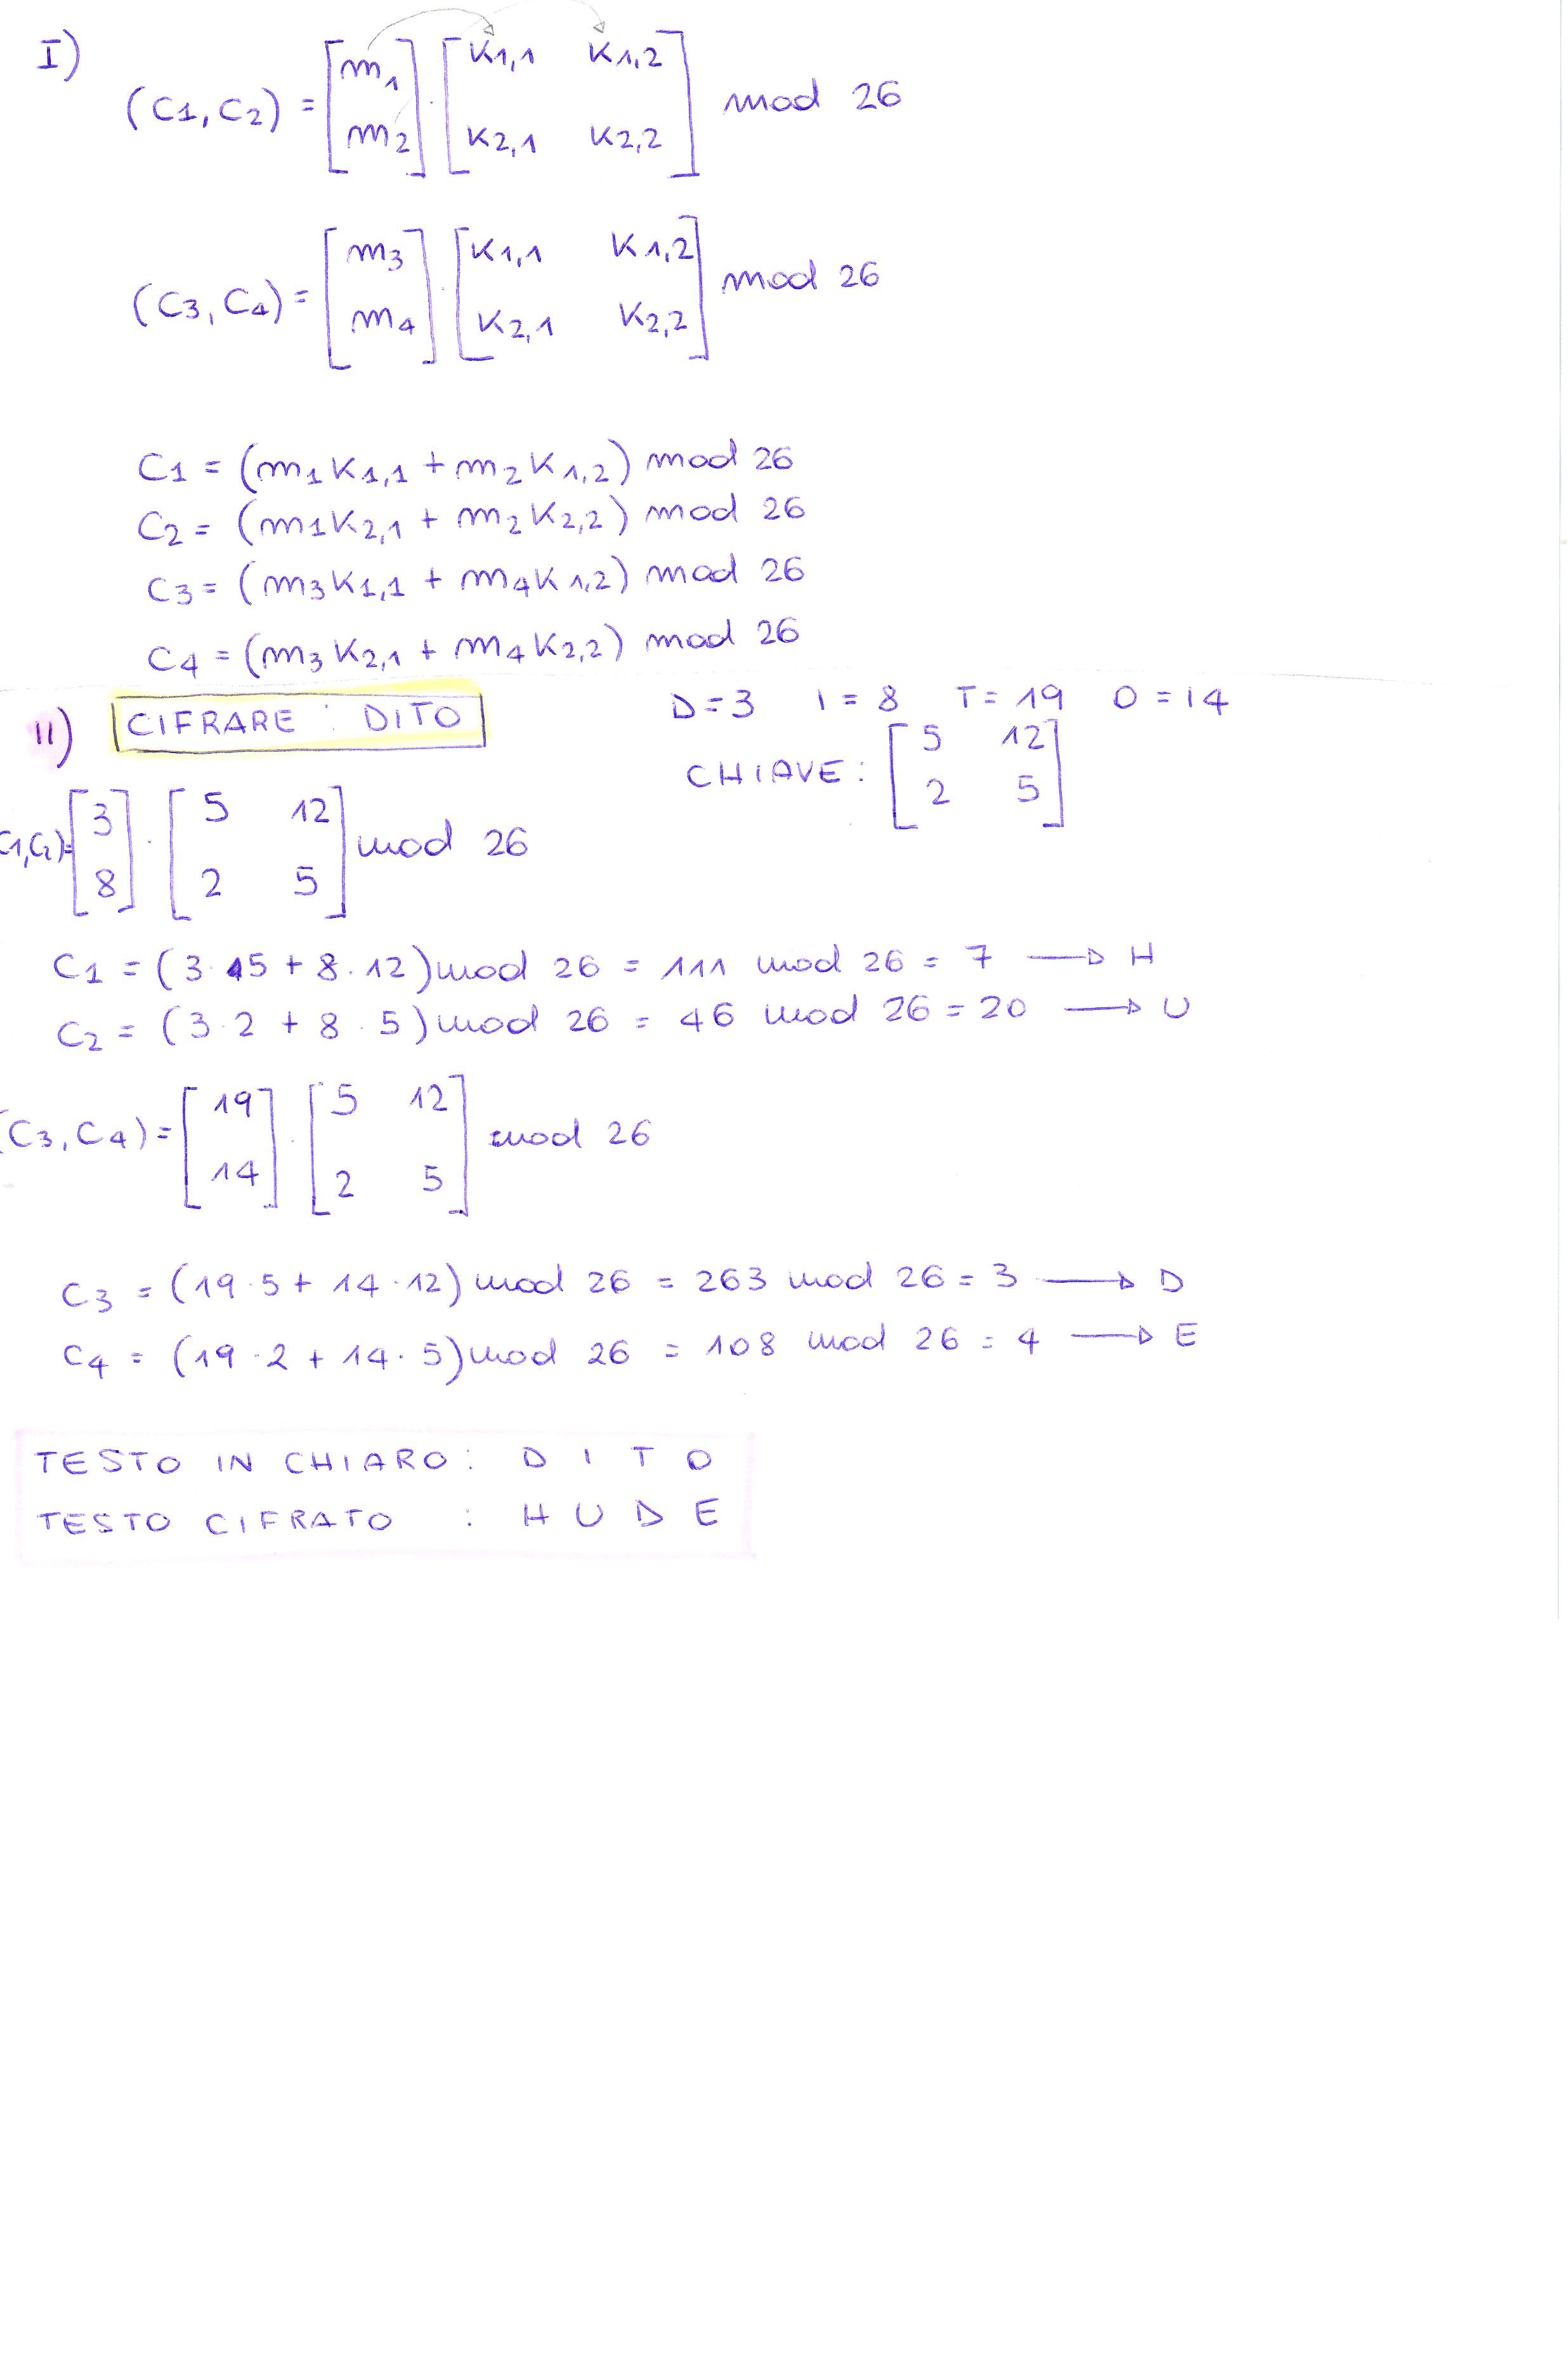 I)
(C1, C2) = [m1 m2] · [K1,1 K1,2 K2,1 K2,2] mod 26
(C3, C4) = [m3 m4] · [K1,1 K1,2 K2,1 K2,2] mod 26
C1 = (m1K1,1 + m2K1,2) mod 26
C2 = (m1K2,1 + m2K2,2) mod 26
C3 = (m3K1,1 + m4K1,2) mod 26
C4 = (m3K2,1 + m4K2,2) mod 26
II) CIFRARE : DITO
D=3 I=8 T=19 O=14
CHIAVE: [5 12 2 5]
C1,C2)= [3 8] · [5 12 2 5] mod 26
C1 = (3·5 + 8·12) mod 26 = 111 mod 26 = 7 → H
C2 = (3·2 + 8·5) mod 26 = 46 mod 26 = 20 → U
(C3, C4) = [19 14] · [5 12 2 5] mod 26
C3 = (19·5 + 14·12) mod 26 = 263 mod 26 = 3 → D
C4 = (19·2 + 14·5) mod 26 = 108 mod 26 = 4 → E
TESTO IN CHIARO : D I T O
TESTO CIFRATO : H U D E